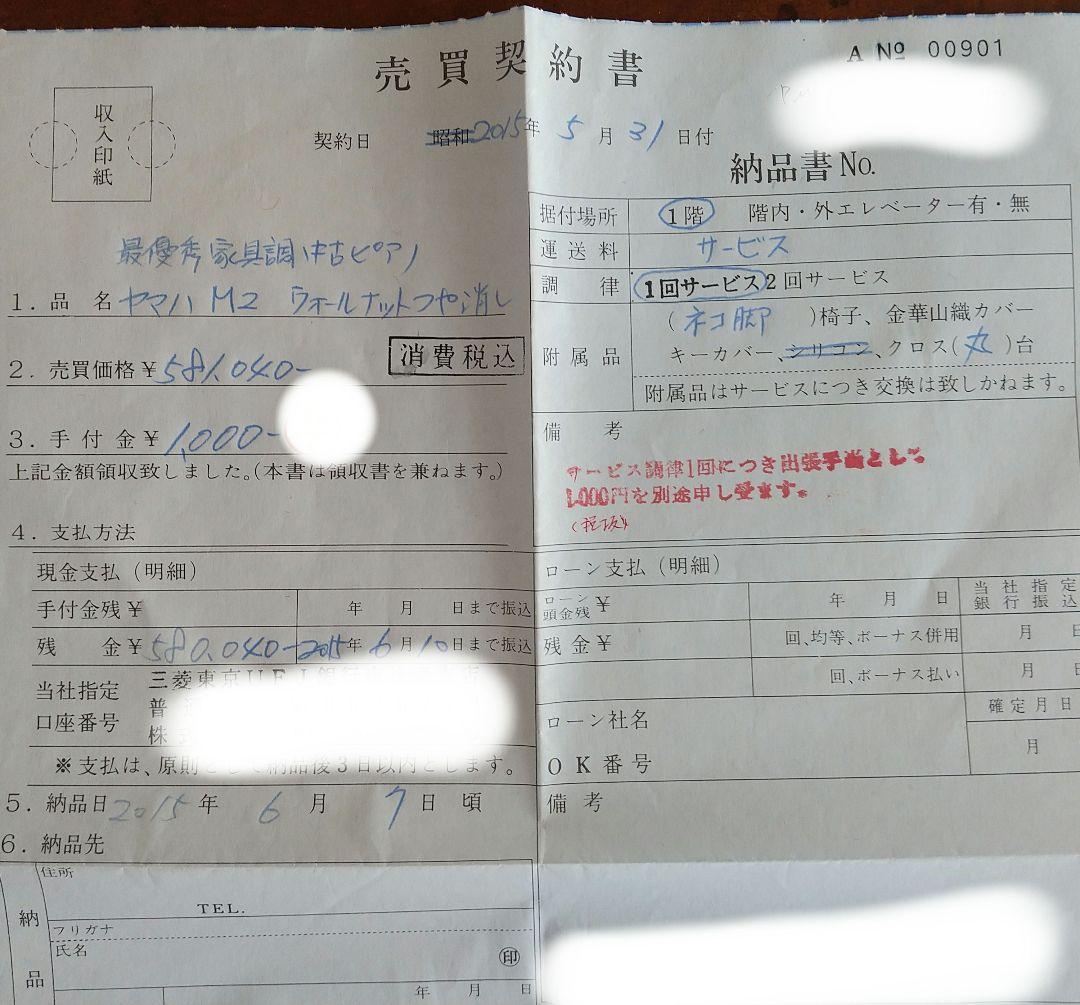 売買契約書
A No 00901
収入印紙
契約日 昭和 2015年 5月 31日付
納品書No.
最優秀家具調中古ピアノ
1. 品名 ヤマハ M2 ウォールナットつや消し
2. 売買価格 ¥581,040-
消費税込
3. 手付金 ¥1,000-
上記金額領収致しました。(本書は領収書を兼ねます。)
4. 支払方法
現金支払(明細)
手付金残 ¥ 年 月 日まで振込
残金 ¥580,040- 2015年 6月 10日まで振込
当社指定
口座番号
三菱東京UFJ銀行
普
株式
※支払は、原則として納品後3日以内とします。
5. 納品日 2015年 6月 7日 頃
6. 納品先
納品
住所
TEL.
フリガナ
氏名
印
年 月 日
据付場所 1階 階内・外エレベーター有・無
運送料 サービス
調律 1回サービス 2回サービス
附属品
(ネコ脚)椅子、金華山織カバー
キーカバー、シリコン、クロス(丸)台
附属品はサービスにつき交換は致しかねます。
備考
サービス調律1回につき出張手当として
1,000円を別途申し受ます。
(税抜)
ローン支払(明細)
ローン頭金残 ¥ 年 月 日 当社指定銀行振込
残金 ¥ 回、均等、ボーナス併用 月 日
回、ボーナス払い 月 日
ローン社名
確定月日
月
OK番号
備考